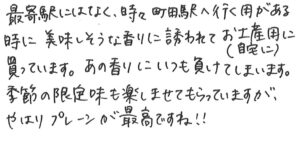 最寄駅にはなく、時々町田駅へ行く用がある
時に美味しそうな香りに誘われてお土産用に
(自宅に)
買っています。あの香りにいつも負けてしまいます。
季節の限定味も楽しませてもらっていますが、
やはりプレーンが最高ですね!!